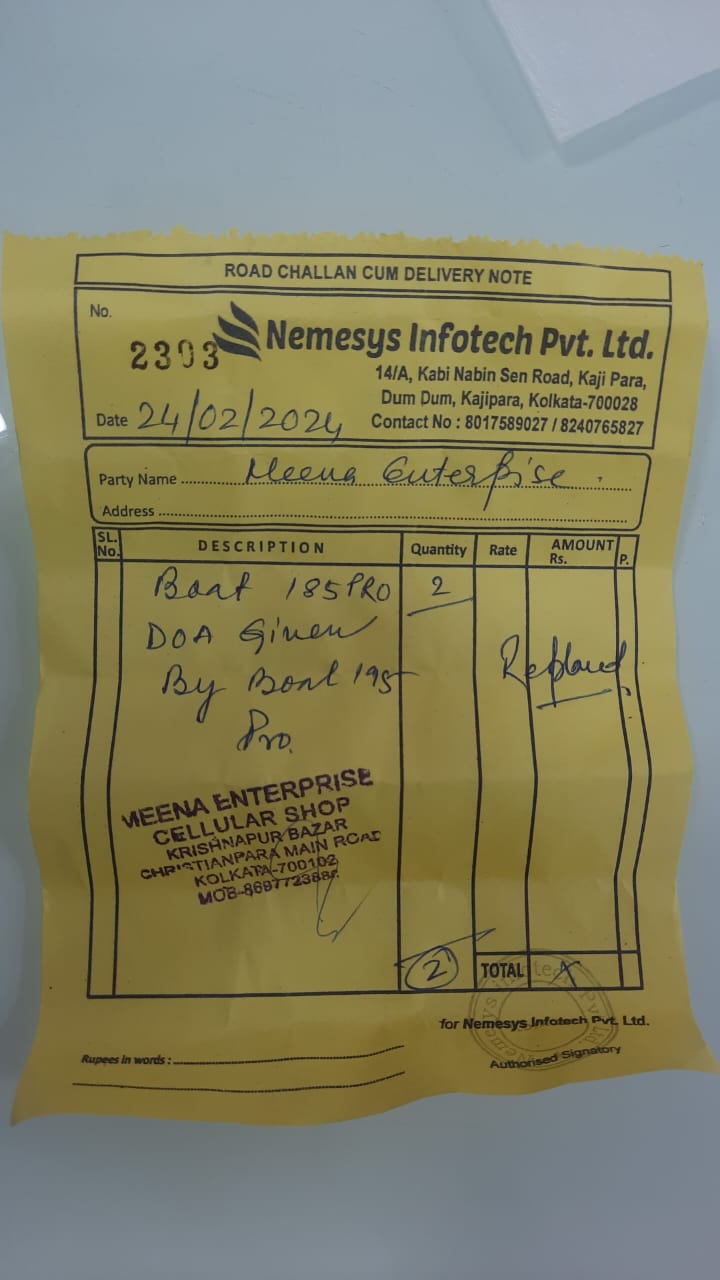 ROAD CHALLAN CUM DELIVERY NOTE
No.
2303
Nemesys Infotech Pvt. Ltd.
14/A, Kabi Nabin Sen Road, Kaji Para,
Dum Dum, Kajipara, Kolkata-700028
Contact No : 8017589027 / 8240765827
Date 24/02/2024
Party Name Meena Enterprise.
Address
SL. No. DESCRIPTION Quantity Rate AMOUNT Rs. P.
Boat 185 PRO 2
DOA Given
By Boat 195
Pro.
MEENA ENTERPRISE
CELLULAR SHOP
KRISHNAPUR BAZAR
CHRISTIANPARA MAIN ROAD
KOLKATA-700102
2 TOTAL X
for Nemesys Infotech Pvt. Ltd.
Rupees in words :
Authorised Signatory